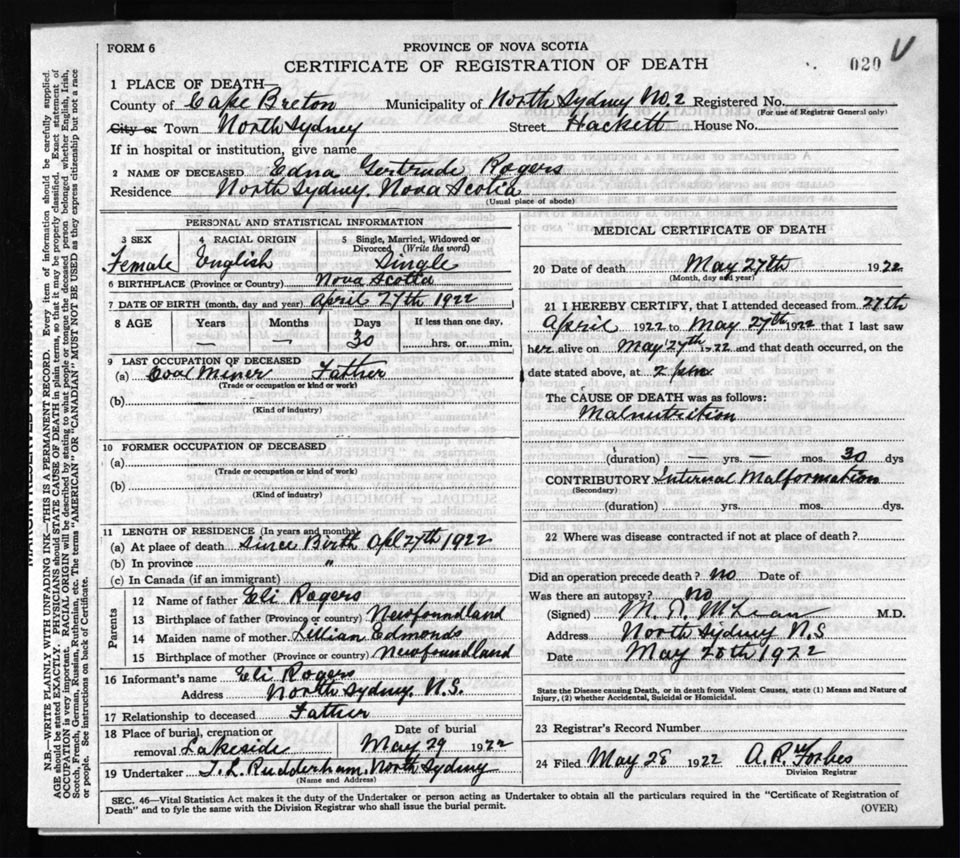 FORM 6
PROVINCE OF NOVA SCOTIA
CERTIFICATE OF REGISTRATION OF DEATH
020 V
1 PLACE OF DEATH
County of Cape Breton Municipality of North Sydney No. 2 Registered No.
(For use of Registrar General only)
City or Town North Sydney Street Hackett House No.
If in hospital or institution, give name
2 NAME OF DECEASED Edna Gertrude Rogers
Residence North Sydney, Nova Scotia
(Usual place of abode)
PERSONAL AND STATISTICAL INFORMATION
3 SEX Female
4 RACIAL ORIGIN English
5 Single, Married, Widowed or Divorced (Write the word) Single
6 BIRTHPLACE (Province or Country) Nova Scotia
7 DATE OF BIRTH (month, day and year) April 27th 1922
8 AGE Years — Months — Days 30 If less than one day, hrs. or min.
9 LAST OCCUPATION OF DECEASED
(a) Coal Miner Father
(Trade or occupation or kind of work)
(b)
(Kind of industry)
10 FORMER OCCUPATION OF DECEASED
(a)
(Trade or occupation or kind of work)
(b)
(Kind of industry)
11 LENGTH OF RESIDENCE (In years and months)
(a) At place of death Since Birth Apl 27th 1922
(b) In province "
(c) In Canada (if an immigrant)
Parents
12 Name of father Eli Rogers
13 Birthplace of father (Province or country) Newfoundland
14 Maiden name of mother Lillian Edmonds
15 Birthplace of mother (Province or country) Newfoundland
16 Informant's name Eli Rogers
Address North Sydney, N.S.
17 Relationship to deceased Father
18 Place of burial, cremation or removal Lakeside
Date of burial May 29 1922
19 Undertaker T. L. Rudderham, North Sydney
(Name and Address)
MEDICAL CERTIFICATE OF DEATH
20 Date of death May 27th 1922
(Month, day and year)
21 I HEREBY CERTIFY, that I attended deceased from 27th
April 1922 to May 27th 1922 that I last saw
her alive on May 27th 1922 and that death occurred, on
date stated above, at 2 pm.
The CAUSE OF DEATH was as follows:
Malnutrition
(duration) — yrs. — mos. 30 dys
CONTRIBUTORY Internal Malformation
(Secondary)
(duration) yrs. mos. dys.
22 Where was disease contracted if not at place of death?
Did an operation precede death? no Date of
Was there an autopsy? no
(Signed) M. McLean M.D.
Address North Sydney N.S
Date May 28th 1922
State the Disease causing Death, or in death from Violent Causes, state (1) Means and Nature of
Injury, (2) whether Accidental, Suicidal or Homicidal.
23 Registrar's Record Number
24 Filed May 28 1922 A. R. Forbes
Division Registrar
SEC. 46—Vital Statistics Act makes it the duty of the Undertaker or person acting as Undertaker to obtain all the particulars required in the "Certificate of Registration of
Death" and to fyle the same with the Division Registrar who shall issue the burial permit.
(OVER)
N.B.—WRITE PLAINLY, WITH UNFADING INK—THIS IS A PERMANENT RECORD. Every item of information should be carefully supplied.
AGE should be stated EXACTLY. PHYSICIANS should STATE CAUSE OF DEATH in plain terms, so that it may be properly classified. Exact statement of
OCCUPATION is very important. RACIAL ORIGIN will be described by stating to what people or tongue the deceased person belonged whether English, Irish,
Scotch, French, German, Russian, Ruthenian, etc. The terms "AMERICAN" OR "CANADIAN" MUST NOT BE USED as they express citizenship but not a race
or people. See instructions on back of Certificate.